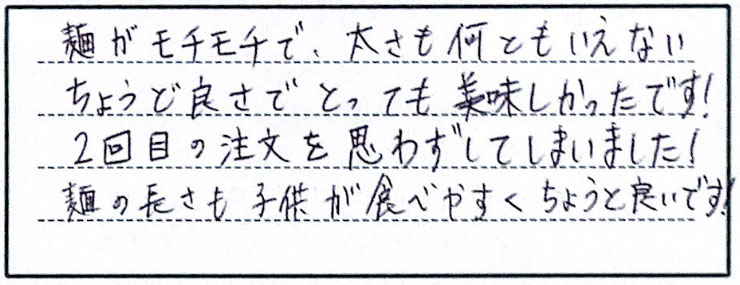 麺がモチモチで、太さも何ともいえない
ちょうど良さでとっても美味しかったです!
2回目の注文を思わずしてしまいました!
麺の長さも子供が食べやすくちょうど良いです!